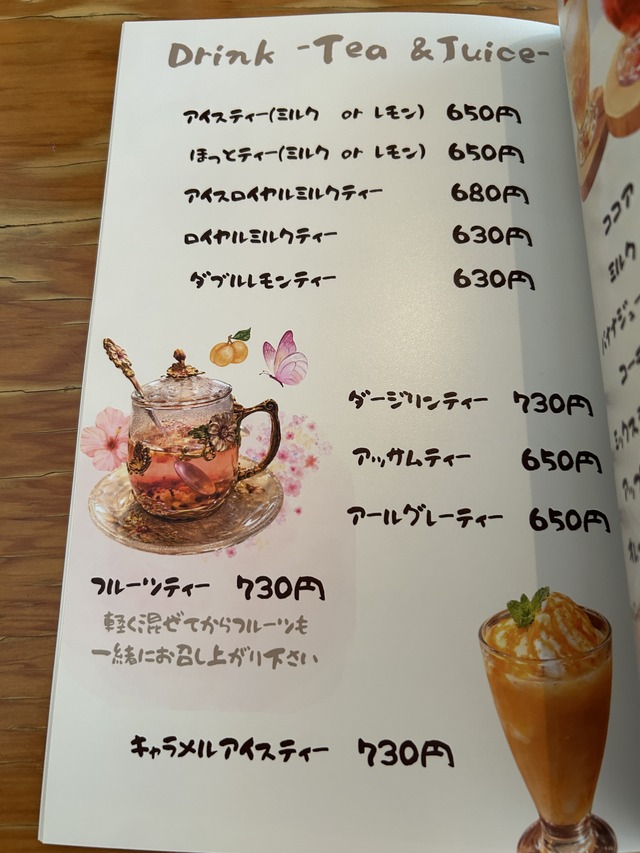 Drink -Tea & Juice-
アイスティー(ミルク or レモン) 650円
ほっとティー(ミルク or レモン) 650円
アイスロイヤルミルクティー 680円
ロイヤルミルクティー 630円
ダブルレモンティー 630円
ダージリンティー 730円
アッサムティー 650円
アールグレーティー 650円
フルーツティー 730円
軽く混ぜてからフルーツも
一緒にお召し上がり下さい
キャラメルアイスティー 730円
ココア
ミルク